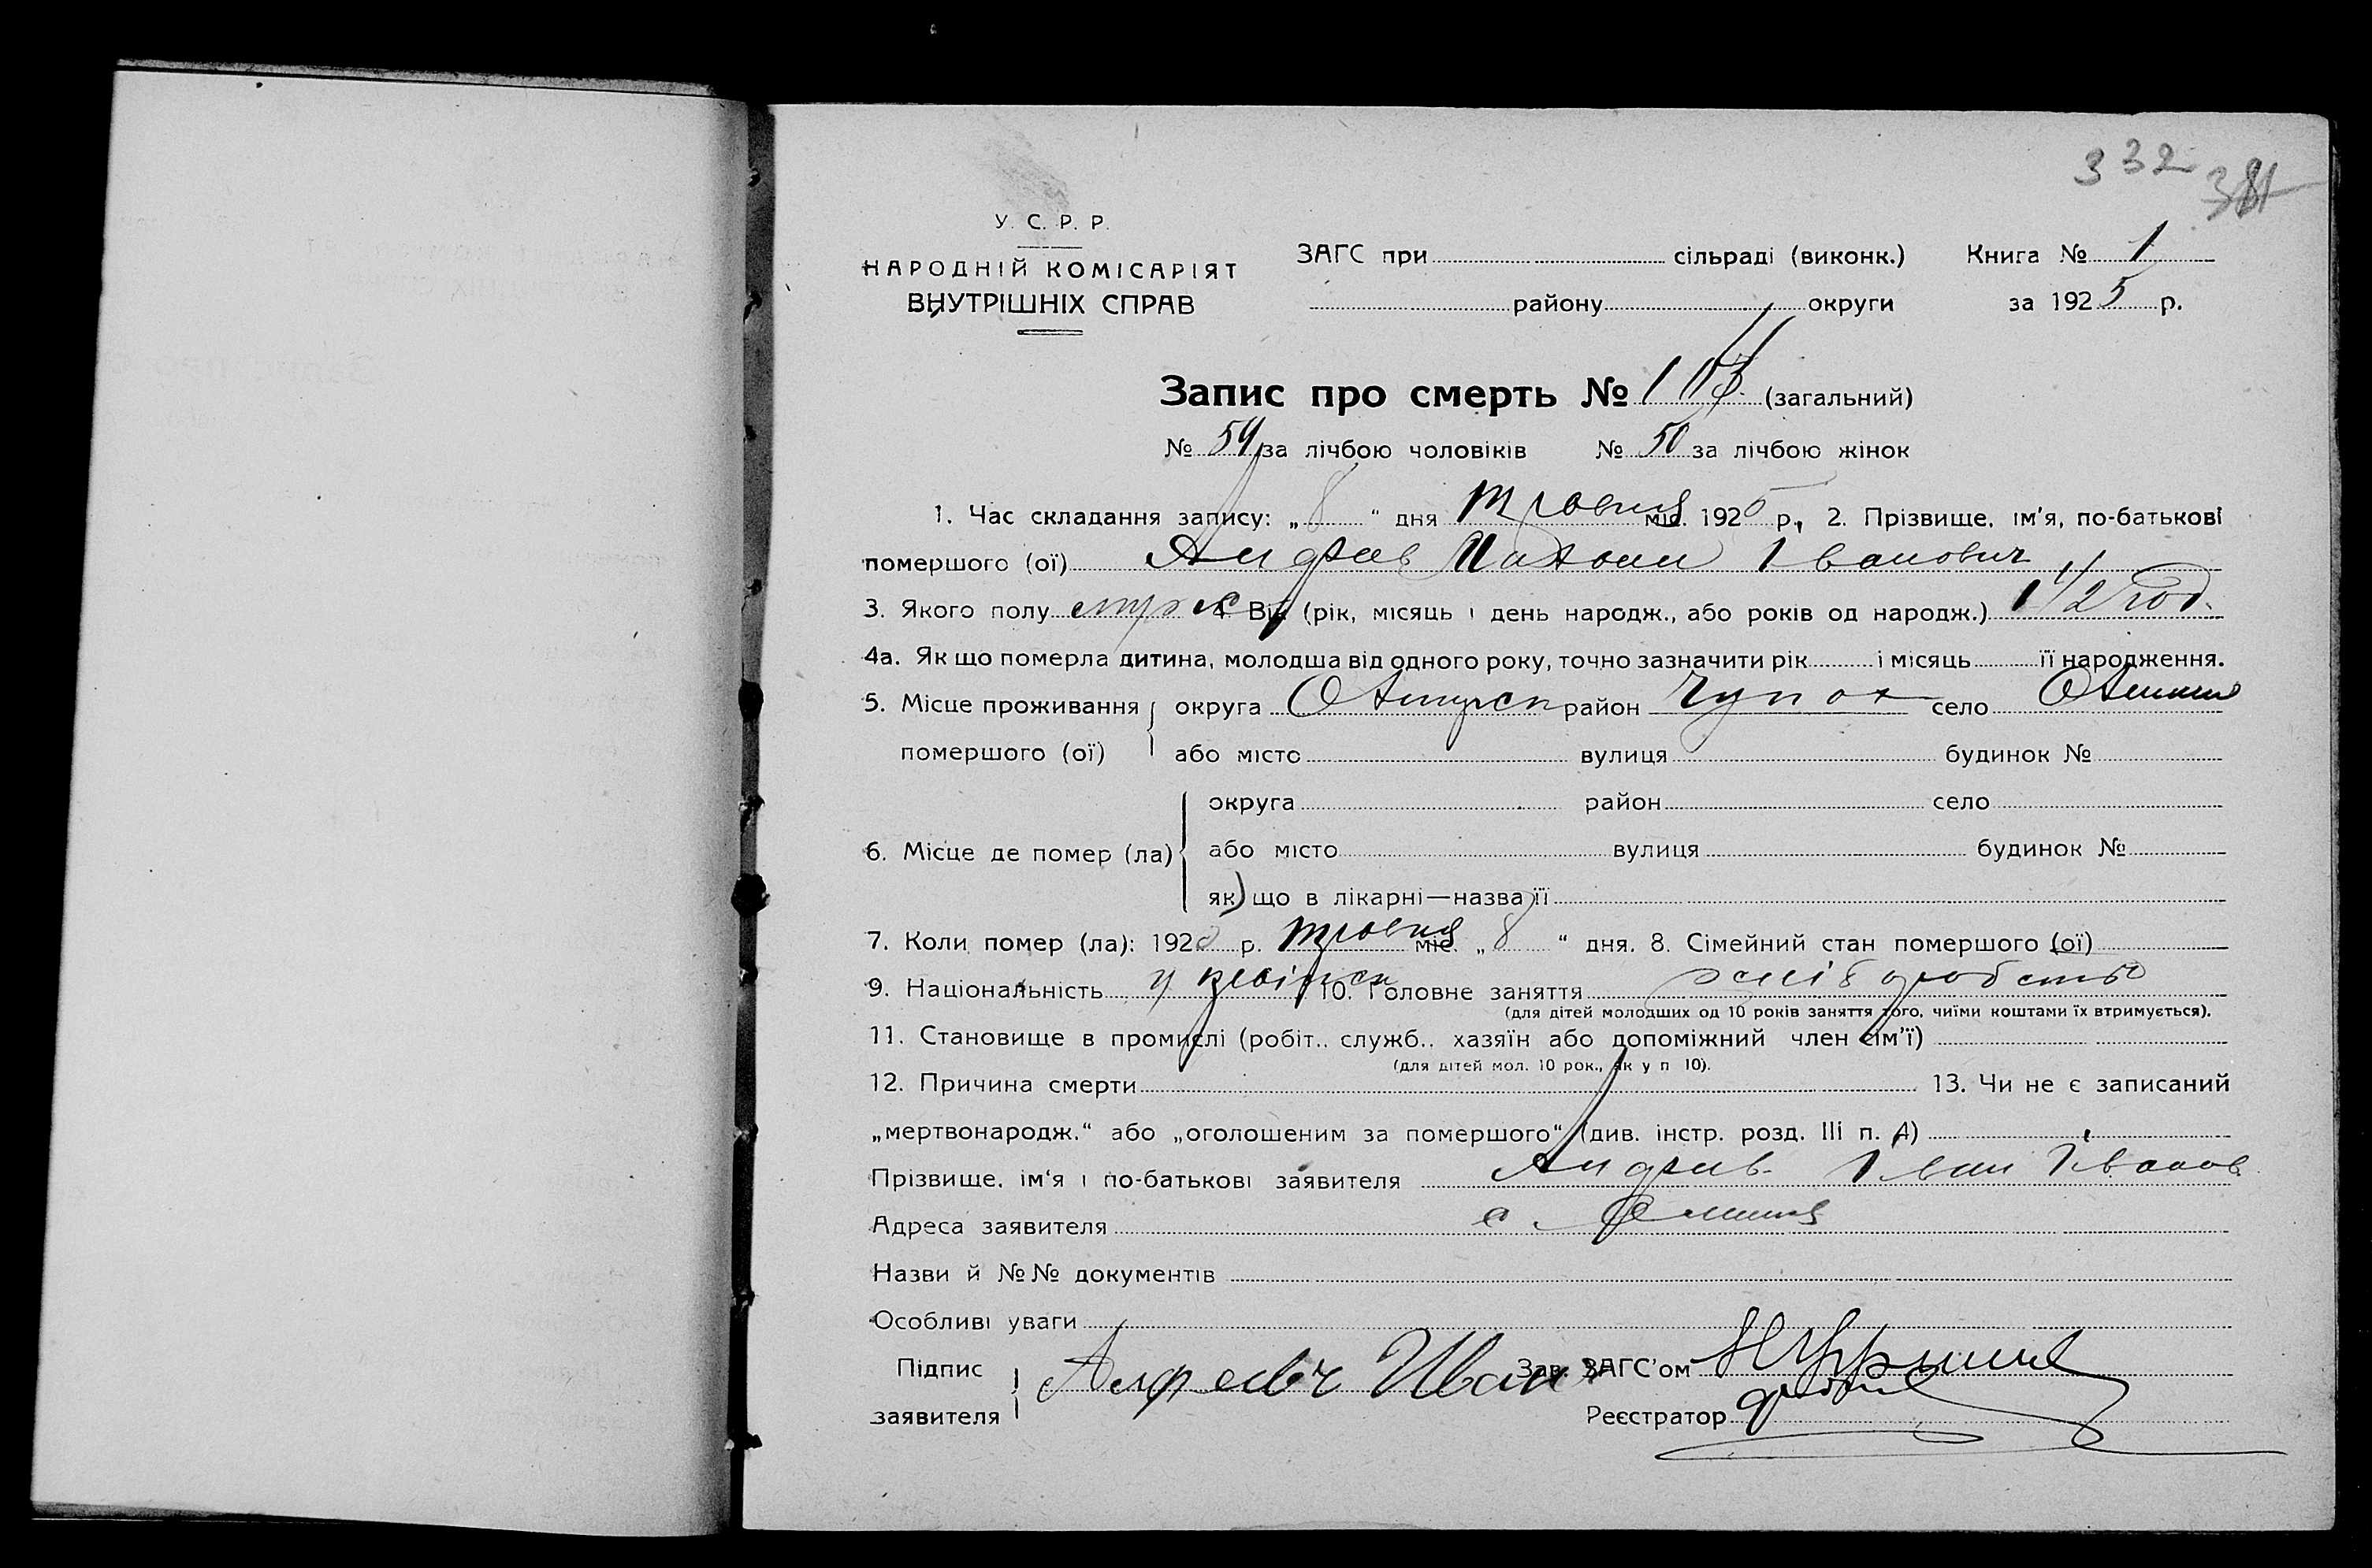 332
У. С. Р. Р.
НАРОДНІЙ КОМІСАРІЯТ
ВНУТРІШНІХ СПРАВ
ЗАГС при сільраді (виконк.)
району округи
Книга № 1
за 1925 р.
Запис про смерть № (загальний)
№ 59 за лічбою чоловіків № 50 за лічбою жінок
1. Час складання запису: „ 8 “ дня травня міс. 1925 р., 2. Прізвище, ім'я, по-батькові
помершого (ої) Іванович
3. Якого полу муж 4. Вік (рік, місяць і день народж., або років од народж.) 1 1/2 год.
4а. Як що померла дитина, молодша від одного року, точно зазначити рік і місяць її народження.
5. Місце проживання помершого (ої) округа район село
або місто вулиця будинок №
6. Місце де помер (ла) округа район село
або місто вулиця будинок №
як що в лікарні—назва її
7. Коли помер (ла): 192 р. травня міс. „ 8 “ дня. 8. Сімейний стан помершого (ої)
9. Національність 10. Головне заняття хліборобство
(для дітей молодших од 10 років заняття того, чиїми коштами їх втримується).
11. Становище в промислі (робіт.. служб.. хазяїн або допоміжний член сім'ї)
(для дітей мол. 10 рок., як у п 10).
12. Причина смерти 13. Чи не є записаний
„мертвонародж.“ або „оголошеним за помершого“ (див. інстр. розд. III п. А)
Прізвище, ім'я і по-батькові заявителя Іван Іванов
Адреса заявителя с
Назви й №№ документів
Особливі уваги
Підпис заявителя Иван Зав. ЗАГС'ом
Реєстратор